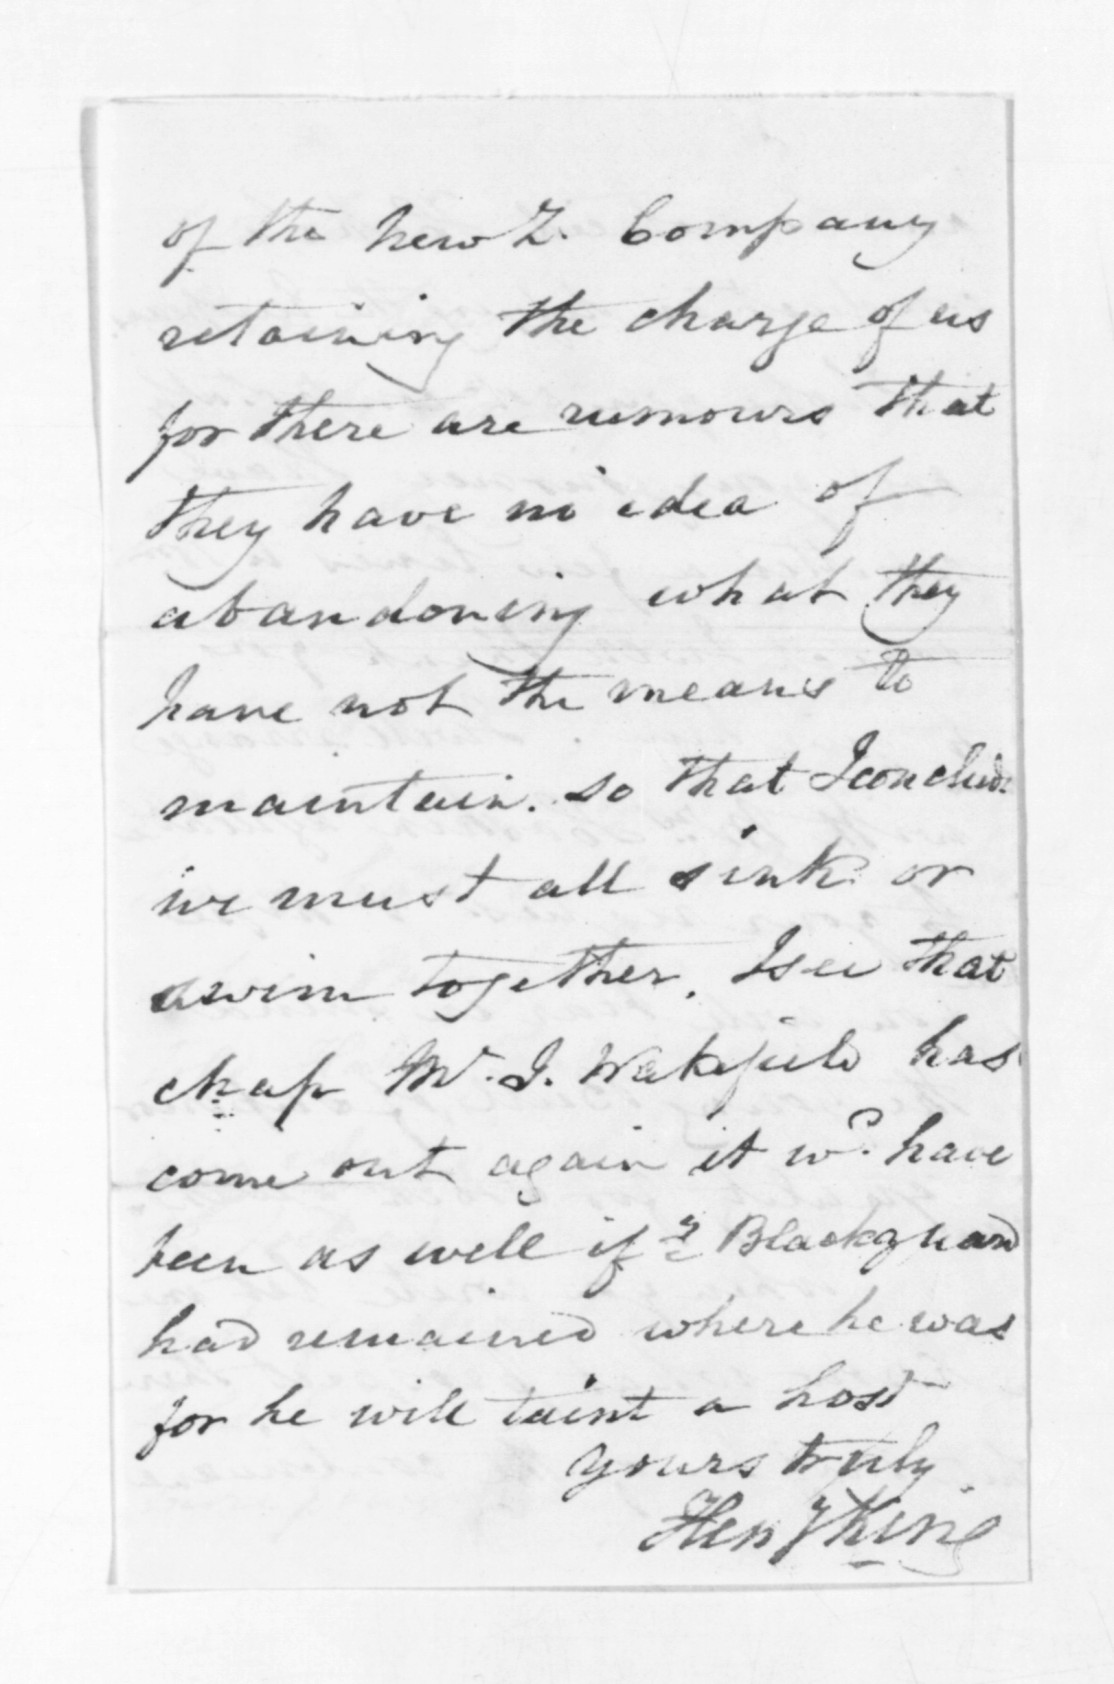 of the New Z. Company
retaining the charge of us
for there are rumours that
they have no idea of
abandoning what they
have not the means to
maintain. so that I conclude
we must all sink or
swim together. I see that
chap Mr. J. Wakefield has
come out again it wd. have
been as well if ye Blackguard
had remained where he was
for he will taint a host
yours truly
Heny King